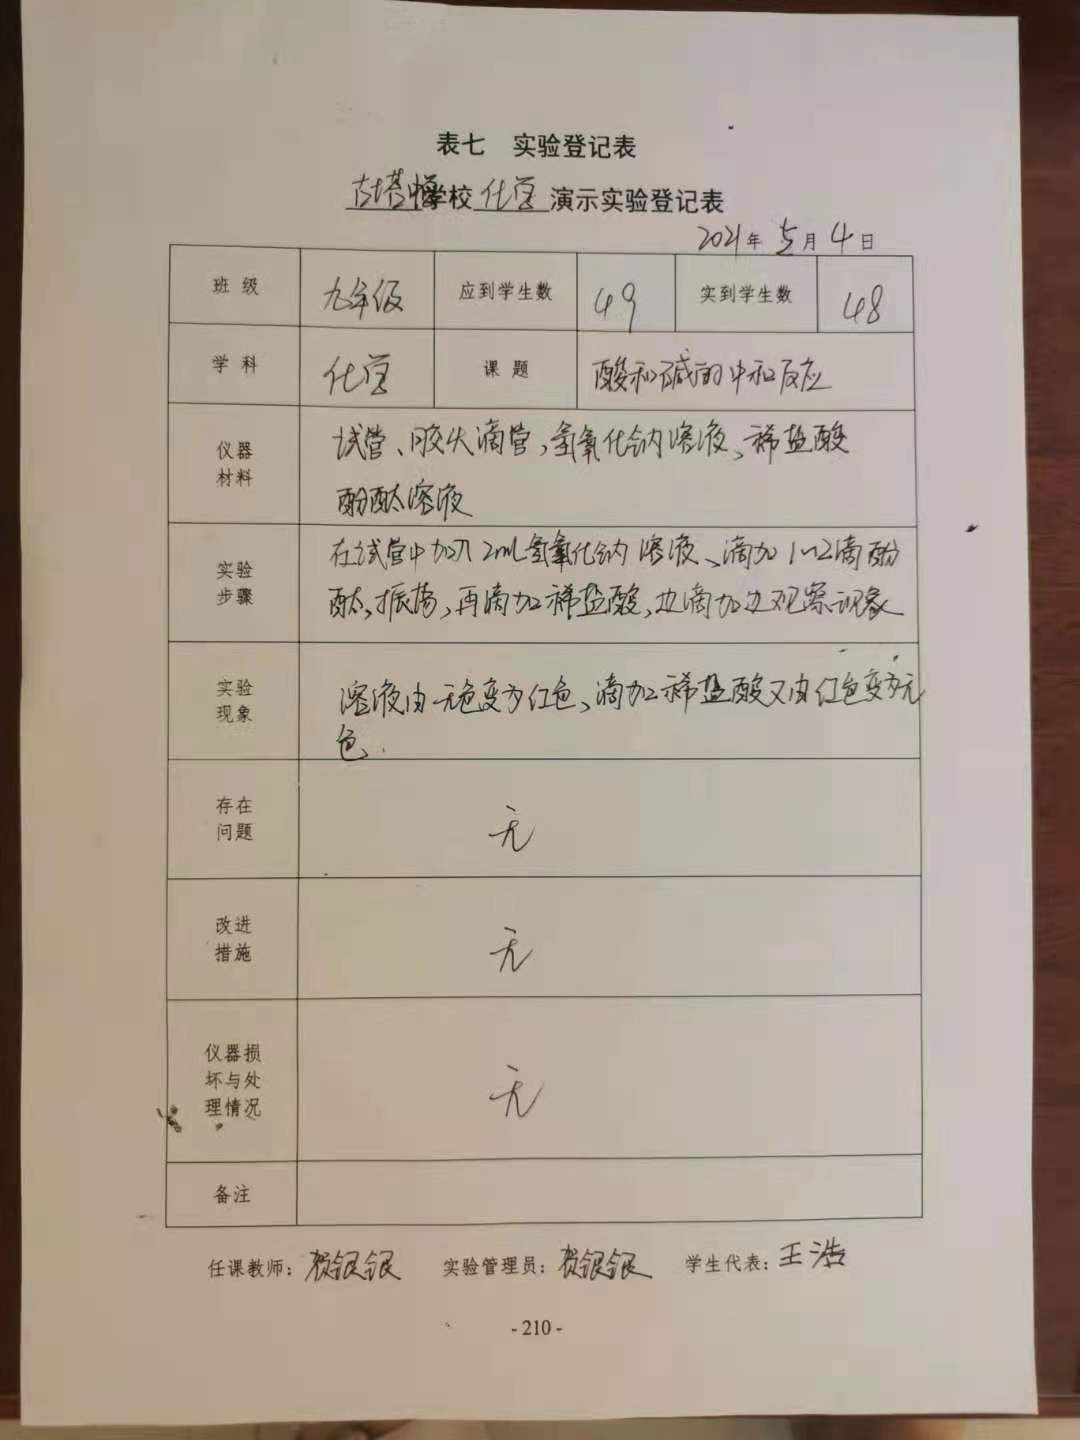 表七 实验登记表
古塔中学校 化学 演示实验登记表
2021年 5月 4日
班级 九年级 应到学生数 49 实到学生数 48
学科 化学 课题 酸和碱的中和反应
仪器材料 试管、胶头滴管,氢氧化钠溶液、稀盐酸
酚酞溶液
实验步骤 在试管中加入2mL氢氧化钠溶液、滴加1~2滴酚
酞,振荡,再滴加稀盐酸,边滴加边观察现象
实验现象 溶液由无色变为红色、滴加稀盐酸又由红色变为无
色.
存在问题 无
改进措施 无
仪器损坏与处理情况 无
备注
任课教师: 银银 实验管理员: 银银 学生代表: 王浩
- 210 -